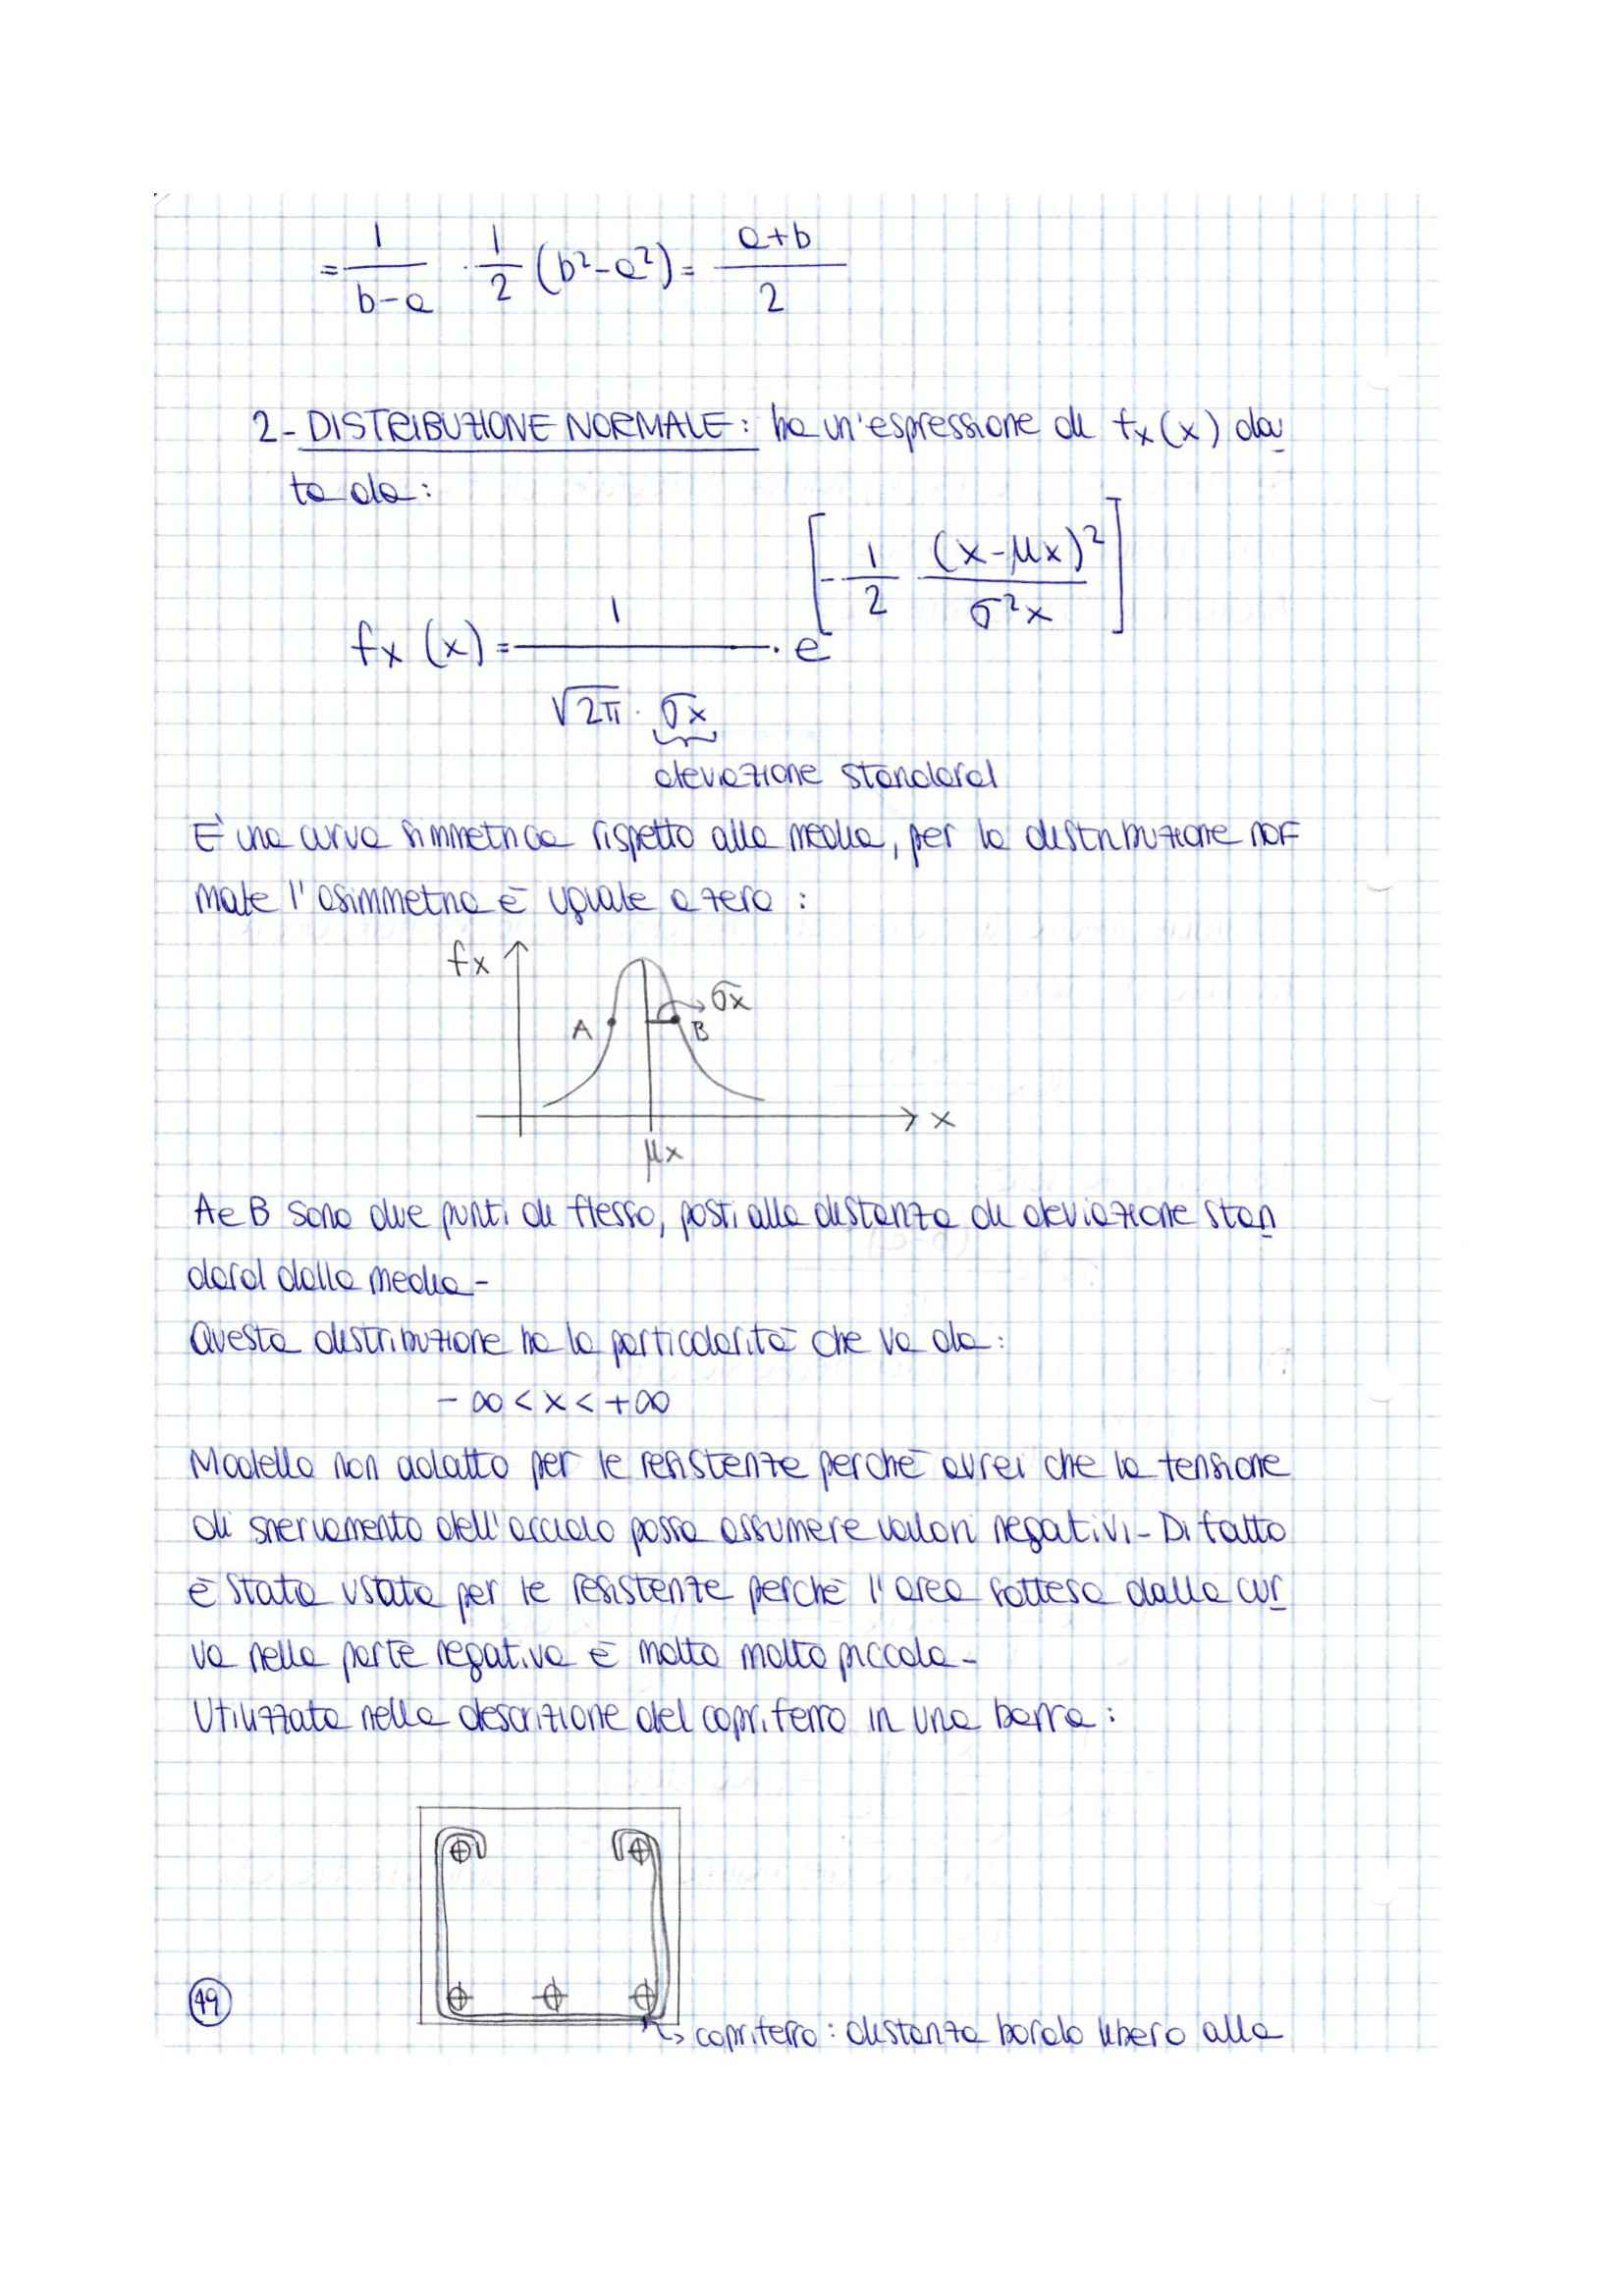 = 1/(b-a) · 1/2 (b²-a²) = (a+b)/2
2- DISTRIBUZIONE NORMALE: ha un'espressione di fx(x) da
ta da:
fx (x) = 1/(√2π · σx) · e^[-1/2 (x-μx)²/σ²x]
deviazione standard
E' una curva simmetrica rispetto alla media, per la distribuzione nor
male l'asimmetria è uguale a zero:
fx
σx
A
B
x
μx
A e B sono due punti di flesso, posti alla distanza di deviazione stan
dard dalla media-
Questa distribuzione ha la particolarità che va da:
-∞ < x < +∞
Modello non adatto per le resistenze perchè avrei che la tensione
di snervamento dell'acciaio possa assumere valori negativi- Di fatto
è stata usata per le resistenze perchè l'area sottesa dalla cur
va nella parte negativa è molto molto piccola-
Utilizzata nella descrizione del copriferro in una barra:
49
copriferro: distanza bordo libero alla